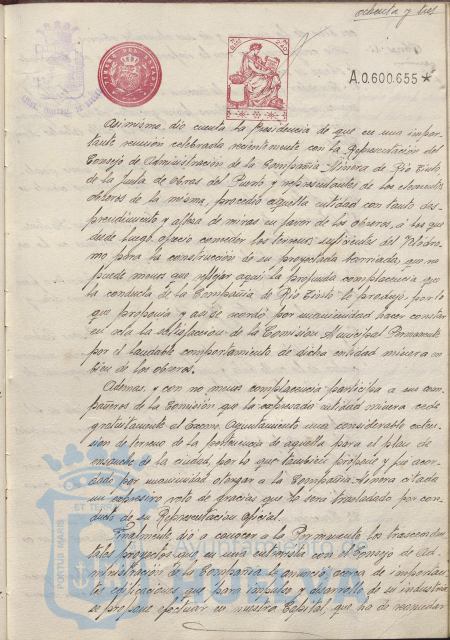 ochenta y tres
A.0.600.655*
Asimismo, dio cuenta la Presidencia de que en una impor-
tante reunión celebrada recientemente con la Representación del
Consejo de Administración de la Compañía Minera de Rio Tinto
de la Junta de Obras del Puerto y representantes de los elementos
obreros de la misma, procedió aquella entidad con tanto des-
prendimiento y alteza de miras en favor de los obreros, á los que
desde luego, ofreció conceder los terrenos suficientes del Velódro-
mo para la construcción de su proyectada barriada, que no
puede menos que reflejar aquí la profunda complacencia que
la conducta de la Compañía de Rio Tinto le produjo, por lo
que proponía y así se acordó por unanimidad hacer constar
en acta la satisfacción de la Comisión Municipal Permanente
por el laudable comportamiento de dicha entidad minera en
bien de los obreros.
Ademas, y con no menos complacencia participa a sus com-
pañeros de la Comisión que la expresada entidad minera cede
gratuitamente al Excmo. Ayuntamiento una considerable exten-
sion de terreno de la pertenencia de aquella para el plan de
ensanche de la ciudad, por lo que tambien propone y fué acor-
dado por unanimidad otorgar a la Compañía Minera citada
un expresivo voto de gracias que le será trasladado por con-
ducto de su Representación Oficial.
Finalmente dió a conocer a la Permanente los trascenden-
tales proyectos que en una entrevista con el Consejo de Ad-
ministración de la Compañía le anunció, acerca de importan-
tes edificaciones que para impulso y desarrollo de su industria
se propone efectuar en nuestra Capital, que ha de redundar
PORTUS MARIS ET TERRÆ
Ayuntamiento de
HUELVA